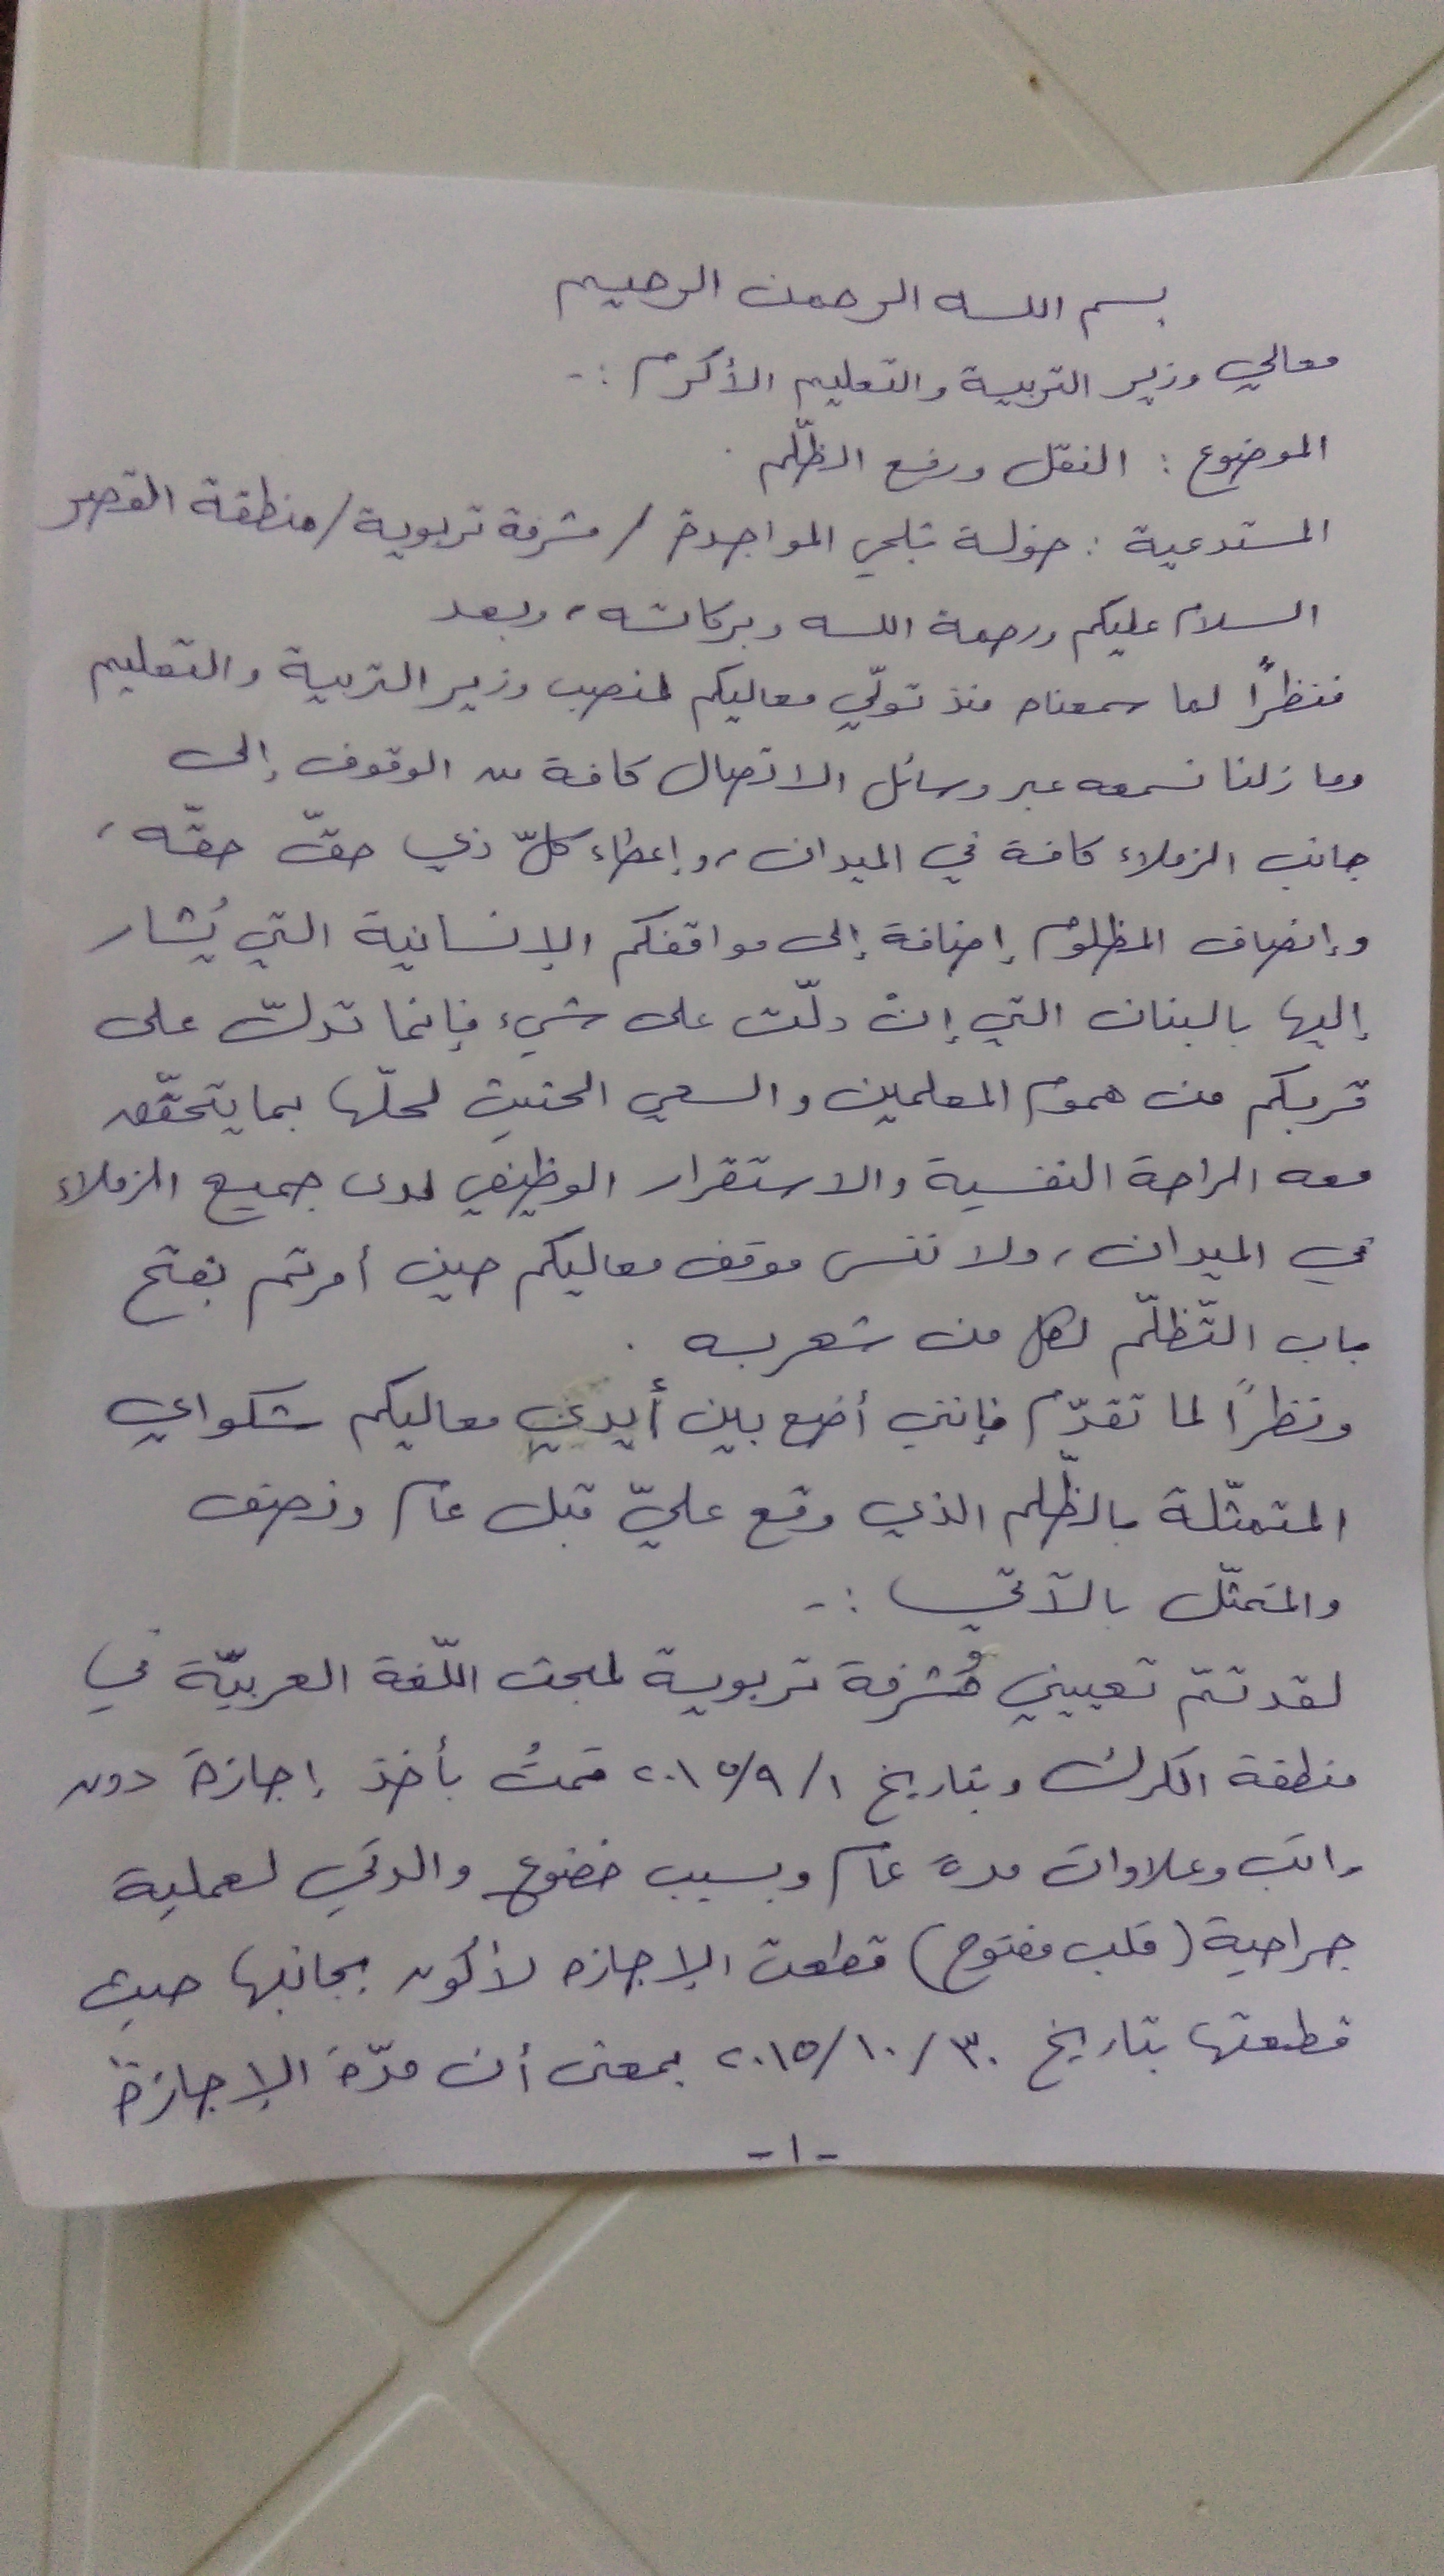 بسم الله الرحمن الرحيم
معالي وزير التربية والتعليم الأكرم :-
الموضوع : النقل ورفع الظّلم .
المستدعية : خولة المواجدة / مشرفة تربوية / منطقة القصر
السلام عليكم ورحمة الله وبركاته ، وبعد
فنظراً لما سمعناه منذ تولّي معاليكم لمنصب وزير التربية والتعليم
وما زلنا نسمعه عبر وسائل الاتصال كافة من الوقوف إلى
جانب الزملاء كافة في الميدان ، وإعطاء كلّ ذي حقّ حقّه ،
وإنصاف المظلوم إضافة إلى مواقفكم الإنسانية التي يُشار
إليها بالبنان التي إن دلّت على شيء فإنما تدلّ على
قربكم من هموم المعلمين والسعي الحثيث لحلّها بما يتحقّق
معه الراحة النفسية والاستقرار الوظيفي لدى جميع الزملاء
في الميدان ، ولا ننسى موقف معاليكم حين أمرتم بفتح
باب التّظلّم لكل من شعر به .
ونظراً لما تقدّم فإنني أضع بين أيدي معاليكم شكواي
المتمثّلة بالظّلم الذي وقع عليّ قبل عام ونصف
والمتمثّل بالآتي :-
لقد تمّ تعييني مُشرفة تربوية لمبحث اللّغة العربيّة في
منطقة الكرك وبتاريخ ١/٩/٢٠١٥ قمتُ بأخذ إجازة دون
راتب وعلاوات مدة عام وبسبب خضوع والدتي لعملية
جراحية (قلب مفتوح) قطعت الإجازه لأكون بجانبها حيث
قطعتها بتاريخ ٣٠/١٠/٢٠١٥ بمعنى أن مدّة الإجازة
-١-